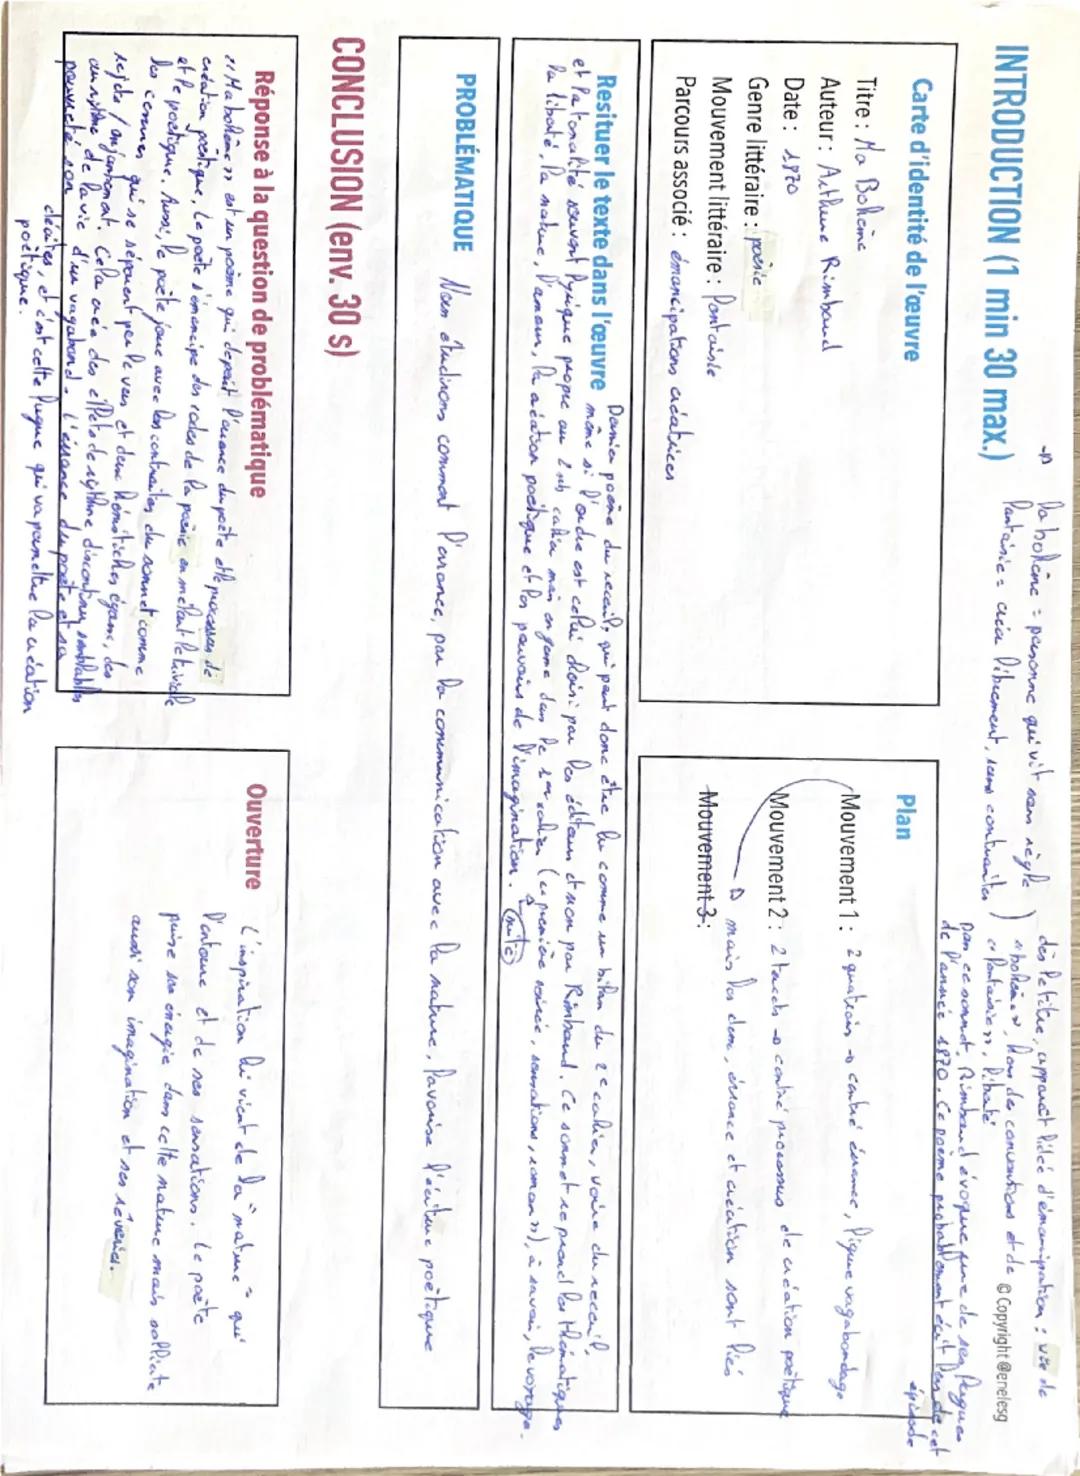 INTRODUCTION (1 min 30 max.)
→ la bohème = personne qui vit sans règle
fantaisie = créer librement, sans contraintes
dès le titre, apparaît l'idée d'émancipation : vie de
"bohème", hors des conventions et de
"fantaisie", liberté
© Copyright @enelesg
Dans ce sonnet, Rimbaud évoque une de ses fugues
de l'année 1870. Ce poème probablement écrit lors de cet
épisode
Carte d'identité de l'œuvre
Titre : Ma Bohème
Auteur : Arthur Rimbaud
Date : 1870
Genre littéraire : poésie
Mouvement littéraire : fantaisie
Parcours associé : émancipations créatrices
Plan
Mouvement 1 : 2 quatrains → centré errance, figure vagabondage
Mouvement 2 : 2 tercets → centré processus de création poétique
→ mais les deux, errance et création sont liés
Mouvement 3 :
Resituer le texte dans l'œuvre Dernier poème du recueil, qui peut donc être lu comme un bilan du 2e cahier, voire du recueil
même si l'ordre est celui choisi par les éditeurs et non par Rimbaud. Ce sonnet reprend les thématiques
et la tonalité souvent lyrique propre au cahier mais en germe dans le 1er cahier ("première soirée", sensations, roman"), à savoir, le voyage,
la liberté, la nature, l'amour, la création poétique et les pouvoirs de l'imagination.
PROBLÉMATIQUE Nous étudirons comment l'errance, par la communication avec la nature, favorise l'écriture poétique
CONCLUSION (env. 30 s)
Réponse à la question de problématique
"Ma bohème" est un poème qui dépeint l'errance du poète et le processus de
création poétique. Le poète s'émancipe des codes de la poésie en mêlant le trivial
et le poétique. Aussi, le poète joue avec les contraites du sonnet comme
les césures qui se séparent pas le vers et deux hémistiches égaux, des
rejets/enjambement. Cela crée des effets de rythme discontinu semblables
au rythme de la vie d'un vagabond. L'errance du poète et sa
pauvreté son
décrites, et c'est cette fugue qui va permettre la création
poétique.
Ouverture
L'inspiration lui vient de la "nature" qui
l'entoure et de ses sensations. Le poète
puise son énergie dans cette nature mais sollicite
aussi son imagination et ses rêveries.